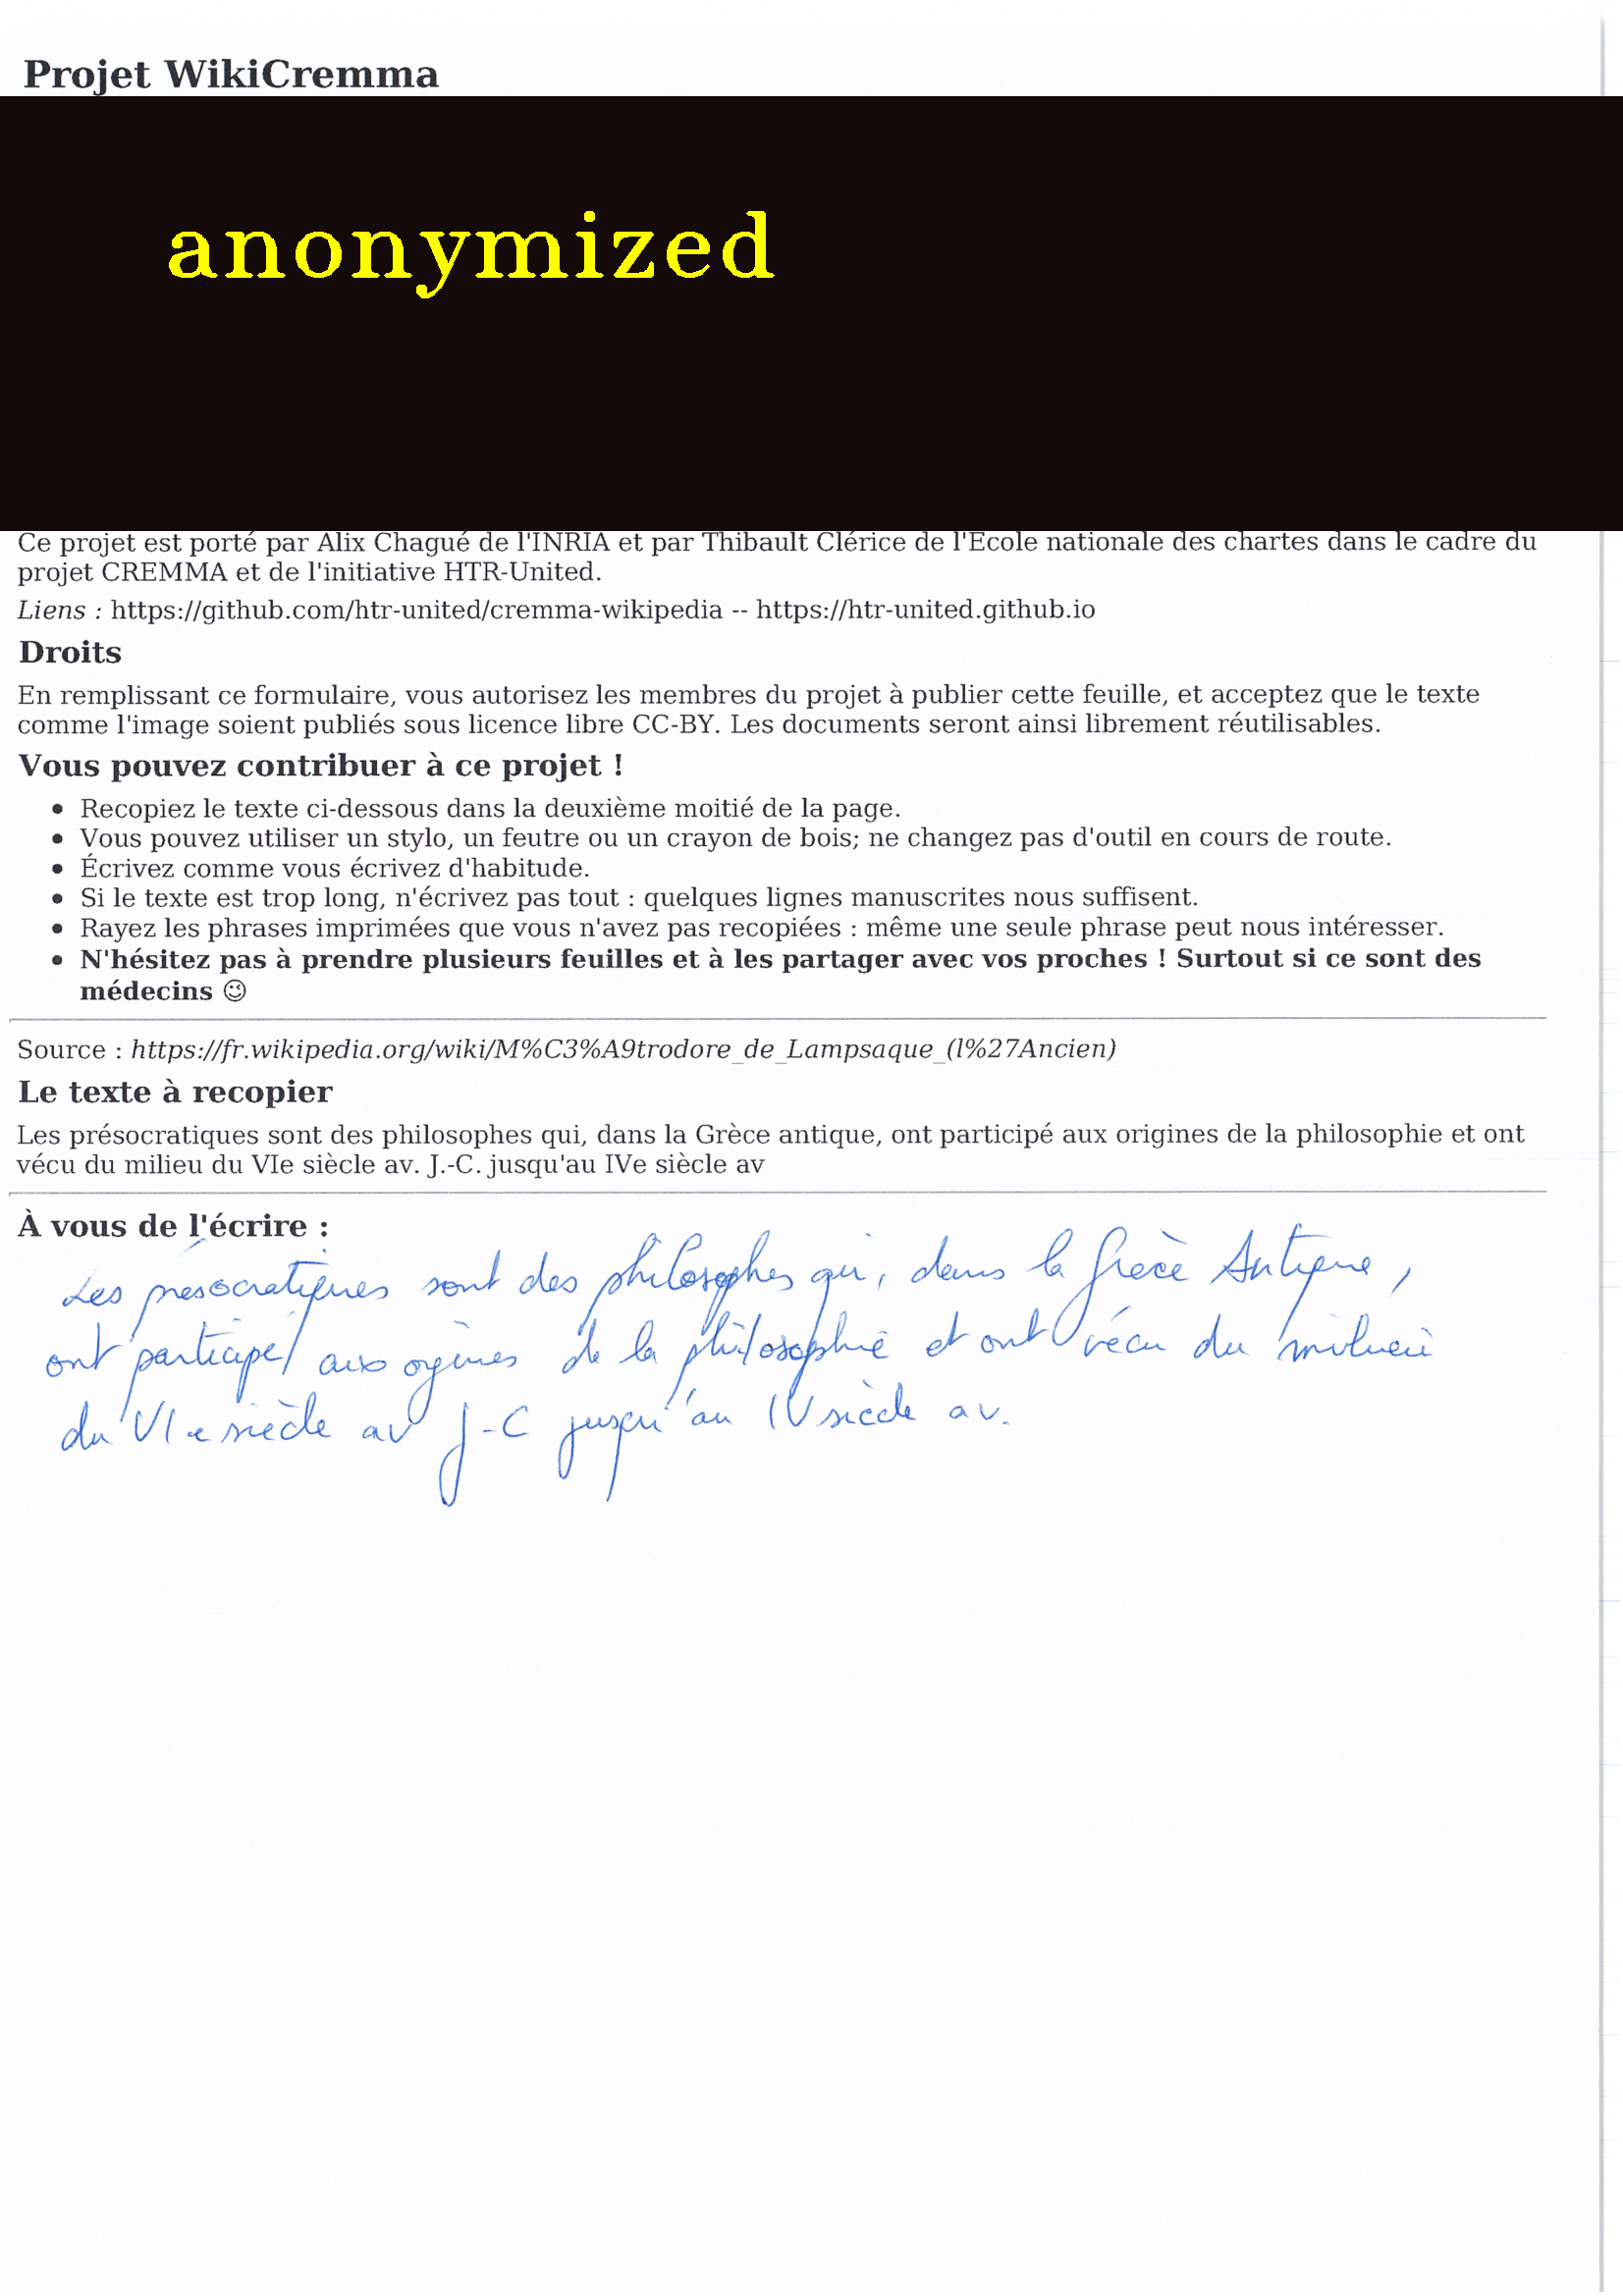 Projet WikiCremma
anonymized
Ce projet est porté par Alix Chagué de l'INRIA et par Thibault Clérice de l'Ecole nationale des chartes dans le cadre du
projet CREMMA et de l'initiative HTR-United.
Liens : https://github.com/htr-united/cremma-wikipedia -- https://htr-united.github.io
Droits
En remplissant ce formulaire, vous autorisez les membres du projet à publier cette feuille, et acceptez que le texte
comme l'image soient publiés sous licence libre CC-BY. Les documents seront ainsi librement réutilisables.
Vous pouvez contribuer à ce projet !
• Recopiez le texte ci-dessous dans la deuxième moitié de la page.
• Vous pouvez utiliser un stylo, un feutre ou un crayon de bois; ne changez pas d'outil en cours de route.
• Écrivez comme vous écrivez d'habitude.
• Si le texte est trop long, n'écrivez pas tout : quelques lignes manuscrites nous suffisent.
• Rayez les phrases imprimées que vous n'avez pas recopiées : même une seule phrase peut nous intéresser.
• N'hésitez pas à prendre plusieurs feuilles et à les partager avec vos proches ! Surtout si ce sont des
médecins ☺
Source : https://fr.wikipedia.org/wiki/M%C3%A9trodore_de_Lampsaque_(l%27Ancien)
Le texte à recopier
Les présocratiques sont des philosophes qui, dans la Grèce antique, ont participé aux origines de la philosophie et ont
vécu du milieu du VIe siècle av. J.-C. jusqu'au IVe siècle av
À vous de l'écrire :
Les présocratiques sont des philosophes qui, dans la Grèce Antique,
ont participé aux origines de la philosophie et ont vécu du milieu
du VIe siècle av J-C jusqu'au IV siècle av.